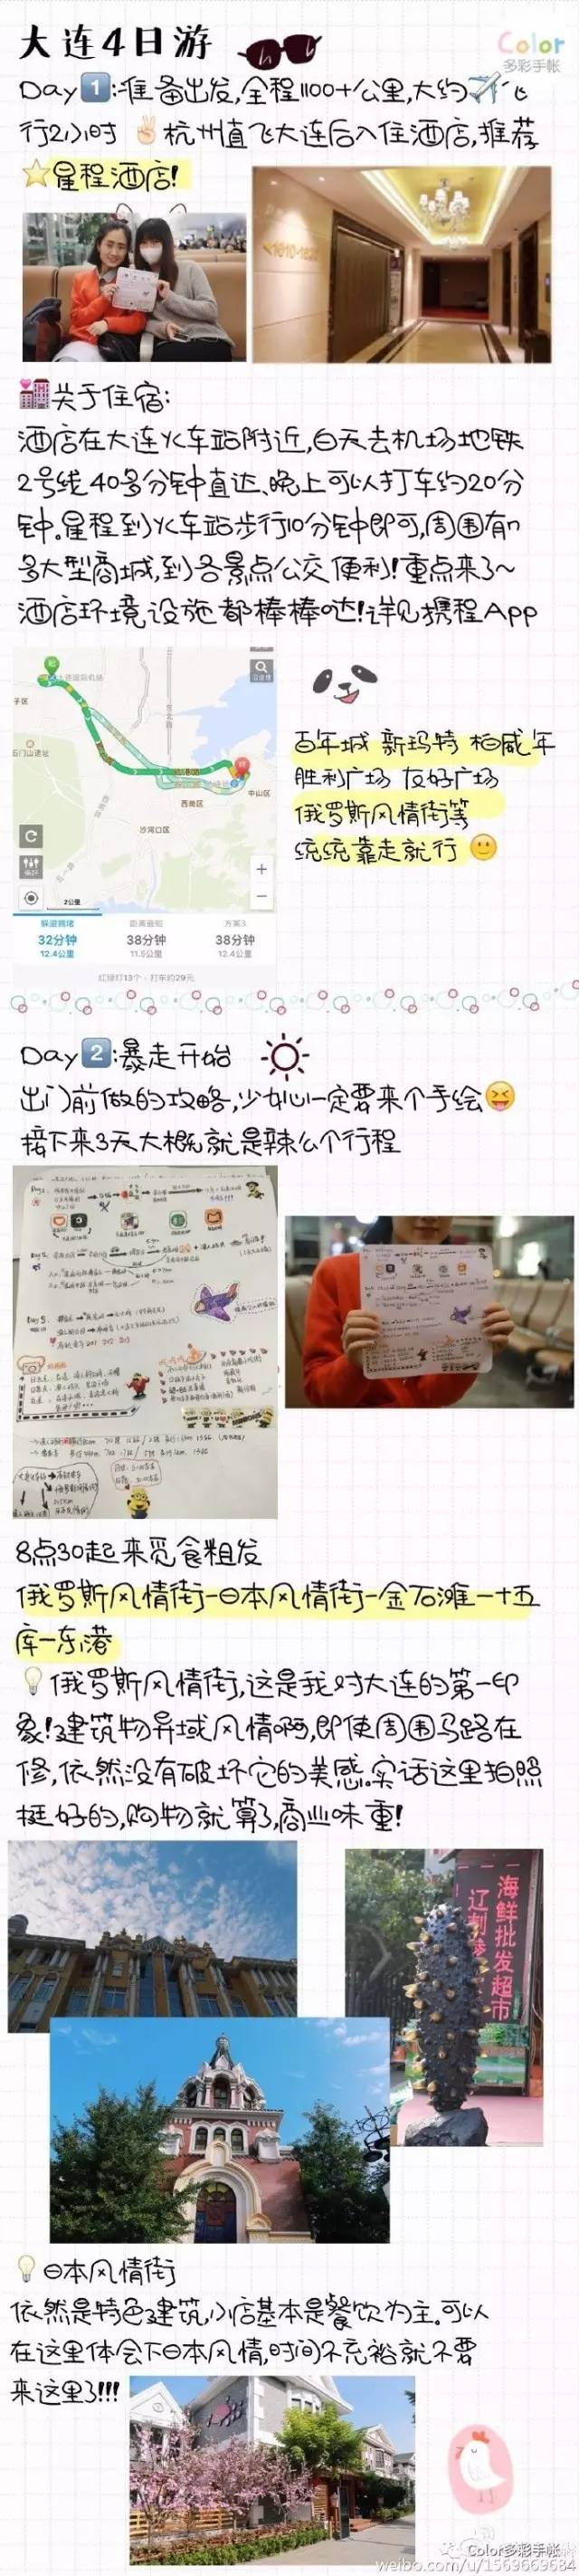 大连4日游
Color
多彩手帐
Day1:准备出发,全程1100+公里,大约飞
行2小时 杭州直飞大连后入住酒店,推荐
星程酒店!
关于住宿:
酒店在大连火车站附近,白天去机场地铁
2号线40多分钟直达、晚上可以打车约20分
钟。星程到火车站步行10分钟即可,周围有n
多大型商城,到各景点公交便利!重点来了~
酒店环境设施都棒棒哒!详见携程App
大连国际机场
中山区
西岗区
沙河口区
2公里
躲避拥堵
32分钟
12.4公里
距离最短
38分钟
11.5公里
方案3
38分钟
12.4公里
红绿灯13个·打车约29元
百年城 新玛特 柏威年
胜利广场 友好广场
俄罗斯风情街等
统统靠走就行
Day2:暴走开始
出门前做的攻略,少女心一定要来个手绘
接下来3天大概就是辣么个行程
8点30起来觅食粗发
俄罗斯风情街—日本风情街—金石滩—十五
库—东港
俄罗斯风情街,这是我对大连的第一印
象!建筑物异域风情啊,即使周围马路在
修,依然没有破坏它的美感。实话这里拍照
挺好的,购物就算了,商业味重!
海鲜批发超市
辽刺参
日本风情街
依然是特色建筑,小店基本是餐饮为主。可以
在这里体会下日本风情,时间不充裕就不要
来这里了!!!
Color多彩手帐
weibo.com/u/1569669684